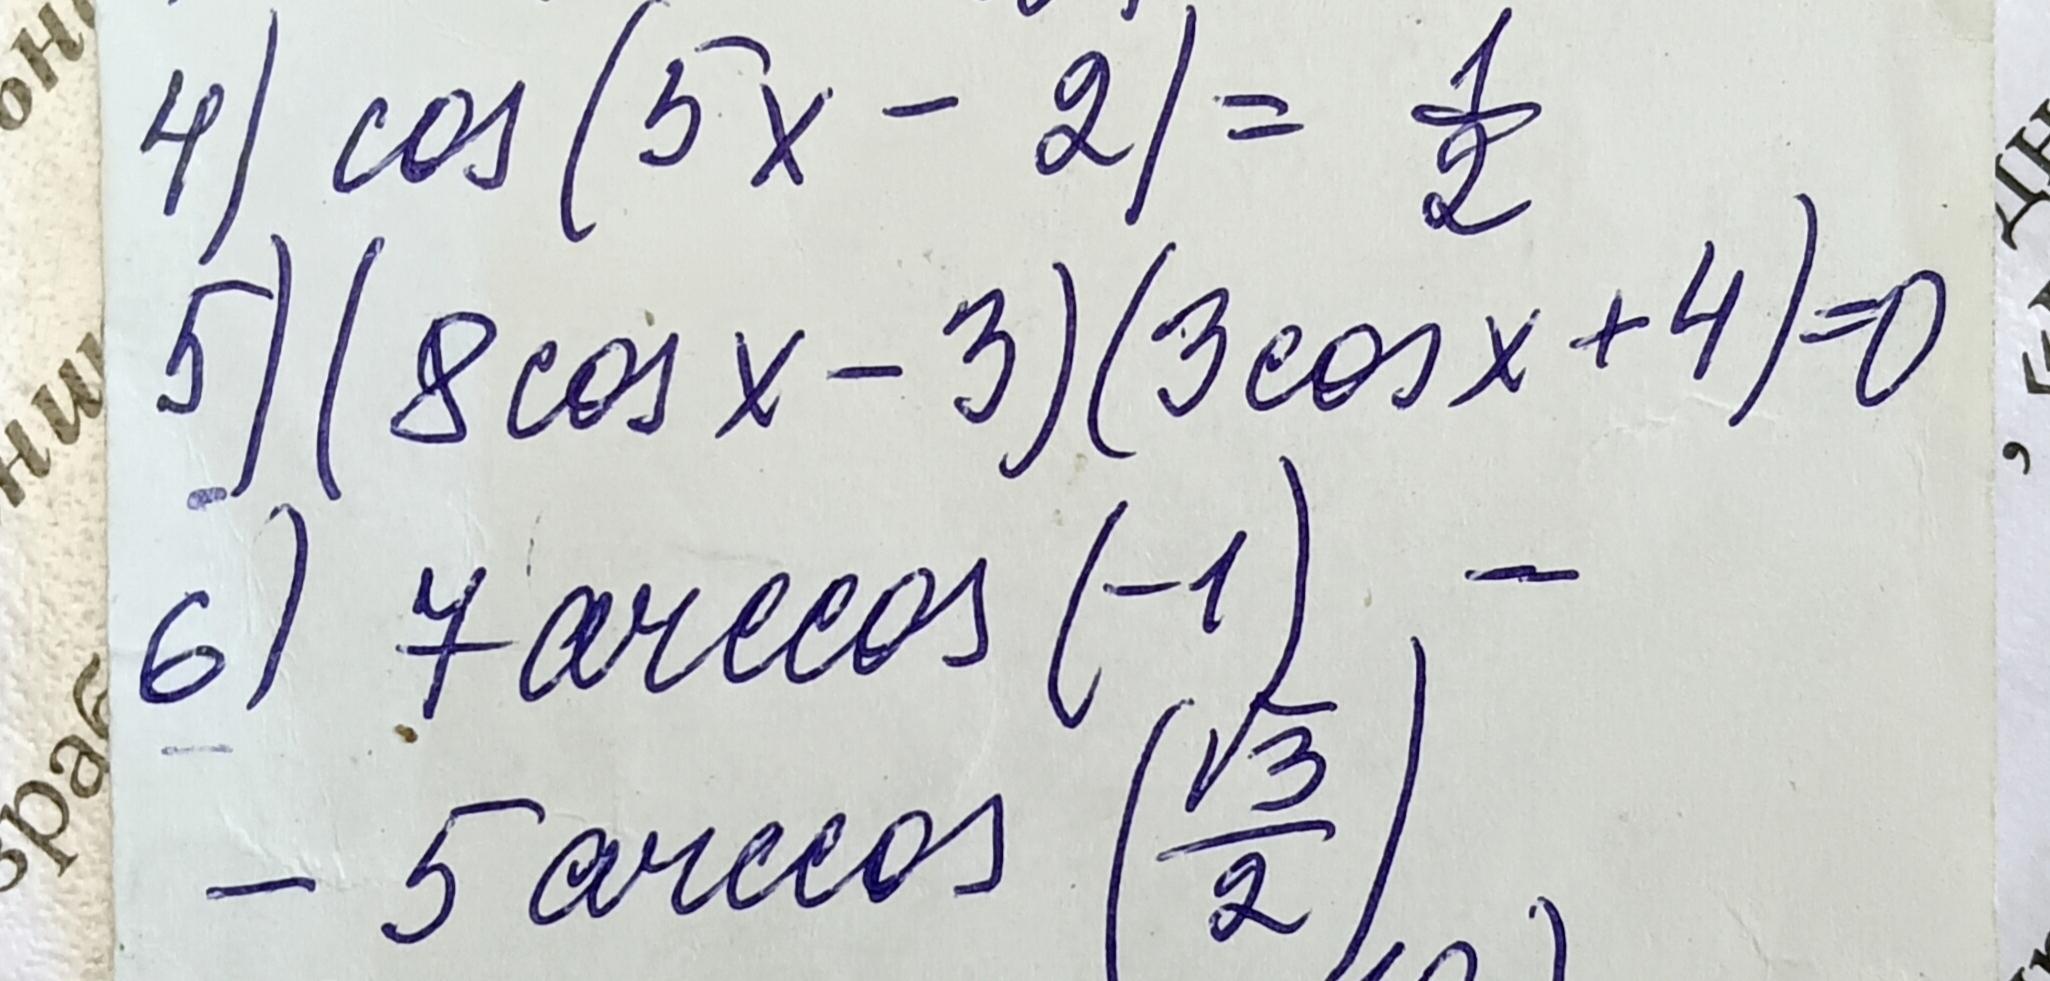 4) cos(5x - 2) = 1/2
5) (8cosx - 3)(3cosx + 4) = 0
6) 7arccos(-1) -
- 5arccos(√3/2)